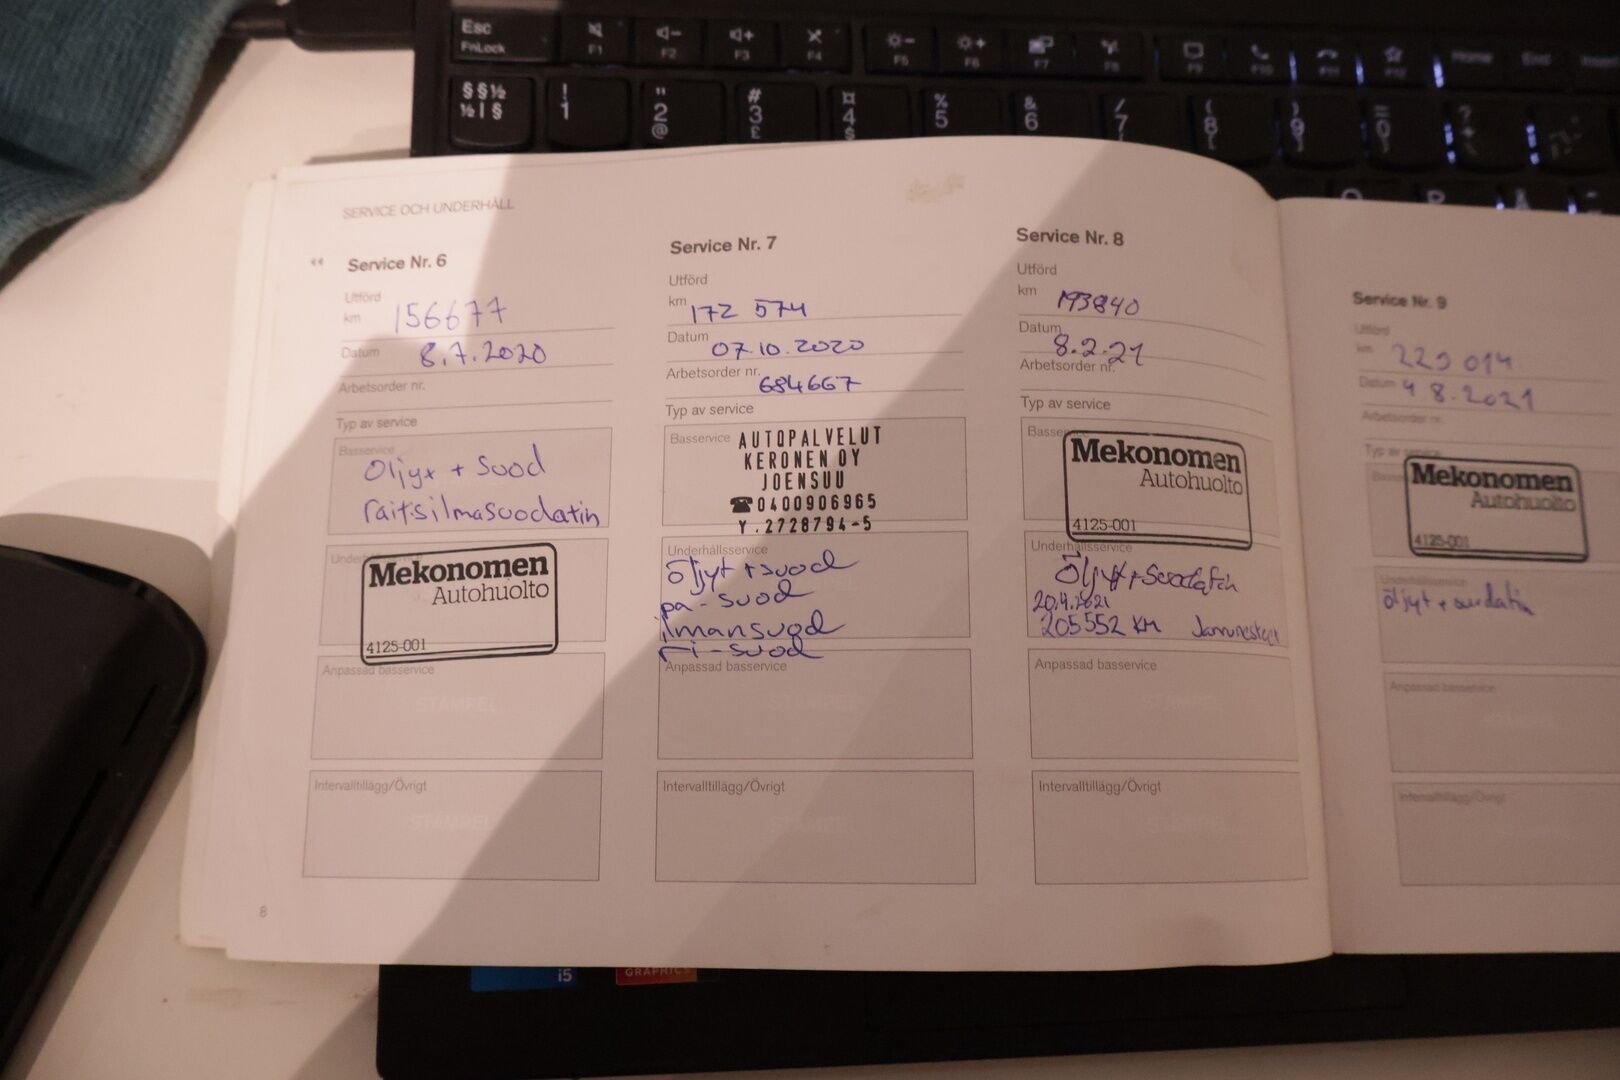 Esc
FnLock
F1
F2
F3
F4
F5
F6
F7
F8
F9
F10
F11
F12
Home
End
Insert
§ § ½
½ | §
!
1
"
2
@
#
3
£
¤
4
%
5
&
6
/
7
(
8
)
9
=
0
SERVICE OCH UNDERHÅLL
Service Nr. 6
Utförd
km 156677
Datum 8.7.2020
Arbetsorder nr.
Typ av service
Basservice
Öljyt + Suod
raitsilmasuodatin
Mekonomen
Autohuolto
4125-001
Anpassad basservice
STÄMPEL
Intervalltillägg/Övrigt
STÄMPEL
8
Service Nr. 7
Utförd
km 172 574
Datum 07.10.2020
Arbetsorder nr. 684667
Typ av service
Basservice
AUTOPALVELUT
KERONEN OY
JOENSUU
☎0400906965
Y.2728794-5
Underhållsservice
öljyt + suod
pa-suod
ilmansuod
ri-suod
Anpassad basservice
STÄMPEL
Intervalltillägg/Övrigt
STÄMPEL
Service Nr. 8
Utförd
km 193840
Datum 8.2.21
Arbetsorder nr.
Typ av service
Mekonomen
Autohuolto
4125-001
Underhållsservice
Öljyt + Suodatin
20.4.2021
205552 KM
Anpassad basservice
STÄMPEL
Intervalltillägg/Övrigt
STÄMPEL
Service Nr. 9
Utförd
km 229 014
Datum 4 8.2021
Arbetsorder nr.
Mekonomen
Autohuolto
4125-001
Underhållsservice
öljyt + suodatin
Anpassad basservice
Intervalltillägg/Övrigt
i5
GRAPHICS